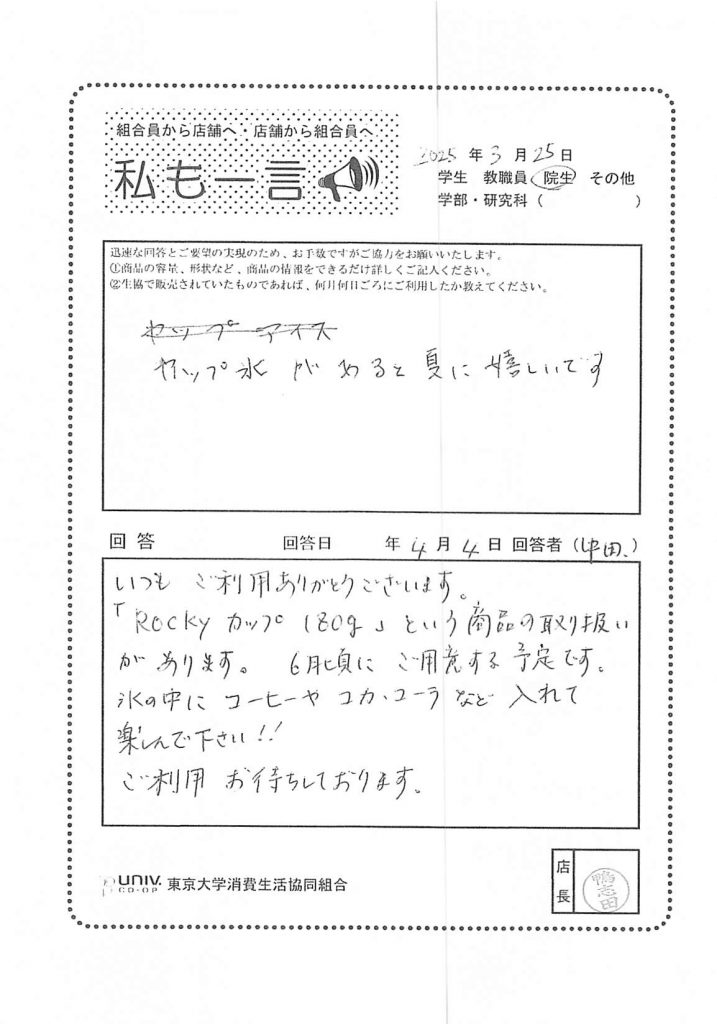 組合員から店舗へ・店舗から組合員へ
私も一言
2025年3月25日
学生 教職員 院生 その他
学部・研究科( )
迅速な回答とご要望の実現のため、お手数ですがご協力をお願いいたします。
①商品の容量、形状など、商品の情報をできるだけ詳しくご記入ください。
②生協で販売されていたものであれば、何月何日ごろにご利用したか教えてください。
カップアイス
カップ氷があると夏に嬉しいです
回答 回答日 年4月4日 回答者(中田)
いつもご利用ありがとうございます。
「Rockyカップ180g」という商品の取り扱い
があります。 6月頃にご用意する予定です。
氷の中にコーヒーやコカ・コーラなど入れて
楽しんで下さい!!
ご利用お待ちしております。
UNIV. CO-OP 東京大学消費生活協同組合
店長 鴨志田